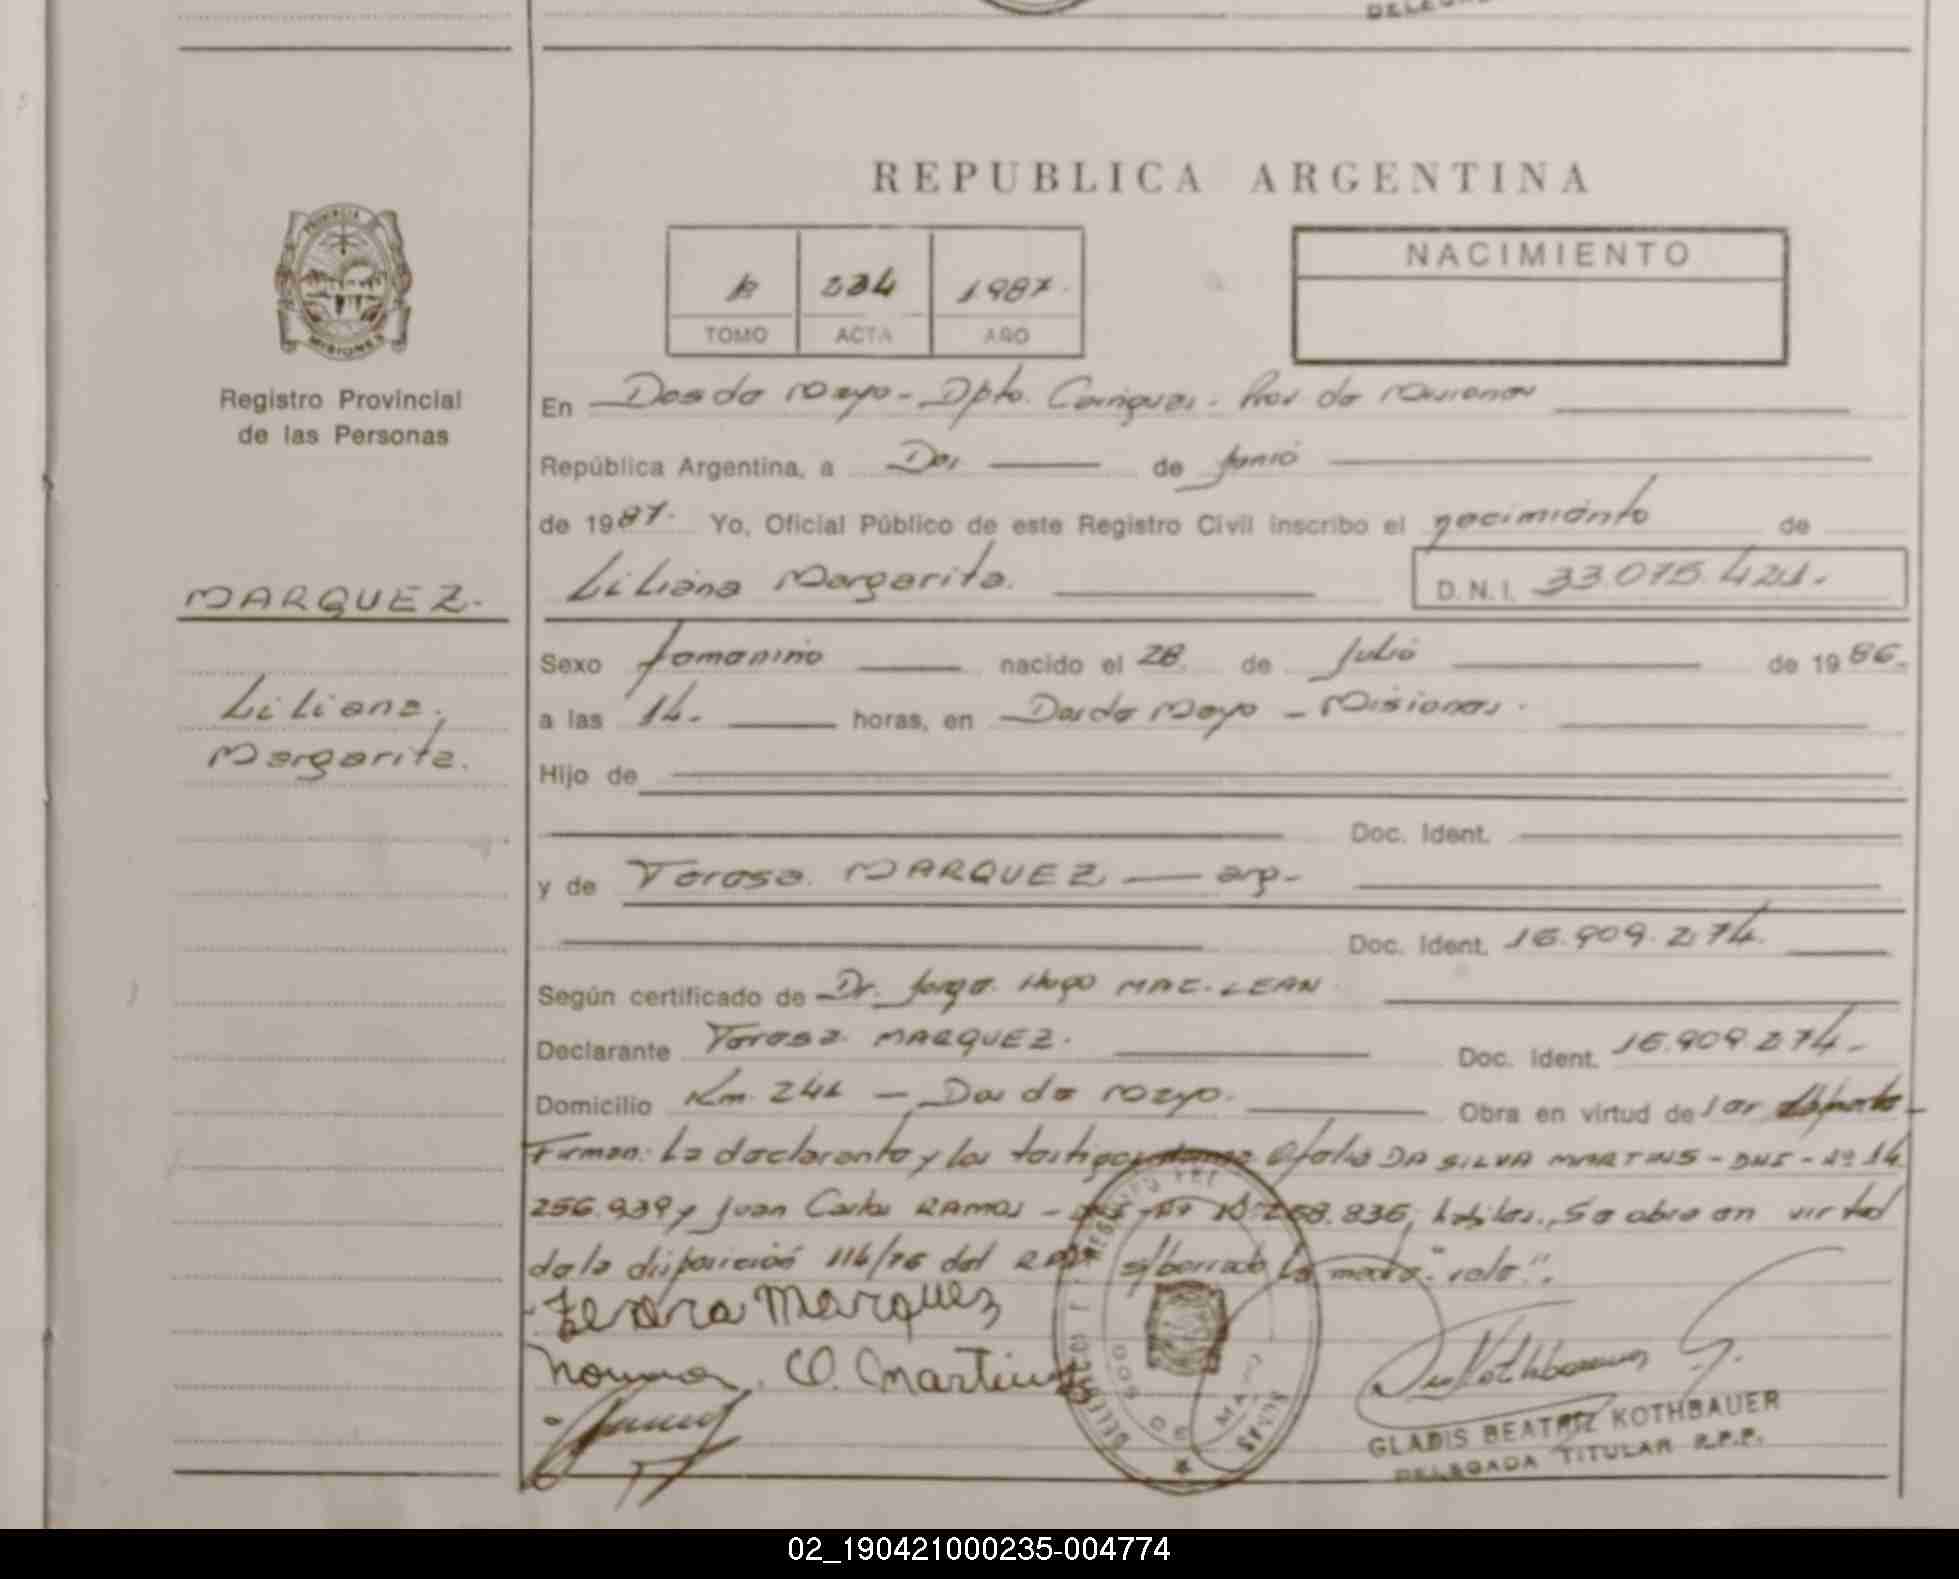 REPUBLICA ARGENTINA
PROVINCIA
MISIONES
Registro Provincial
de las Personas
MARQUEZ.
Liliana
Margarita.
234 1987.
TOMO ACTA AÑO
NACIMIENTO
En Dos de Mayo - Dpto. Cainguas - Prov de Misiones
República Argentina, a Dos de Junio
de 1987. Yo, Oficial Público de este Registro Civil inscribo el nacimiento de
Liliana Margarita. D.N.I. 33.075.421.
Sexo femenino nacido el 28 de Julio de 1986.
a las 14. horas, en Dos de Mayo - Misiones.
Hijo de
Doc. Ident.
y de Teresa MARQUEZ — arg-
Doc. Ident. 16.909.274.
Según certificado de Dr. Jorge Hugo MAC-LEAN
Declarante Teresa MARQUEZ. Doc. Ident. 16.909.274.
Domicilio Km. 241 - Dos de Mayo. Obra en virtud de
Firman: La declarante y los testigos Ofelia DA SILVA MARTINS - DNI - Nº 14
256.939 y Juan Carlos RAMOS - DNI - Nº 258.836, habiles. Se obra en virtud
de la disposición 114/76 del s/borrado
Teresa Marquez
Norma O. Martins
Kothbauer G.
GLADIS BEATRIZ KOTHBAUER
DELEGADA TITULAR R.P.P.
DOS DE MAYO
02_190421000235-004774